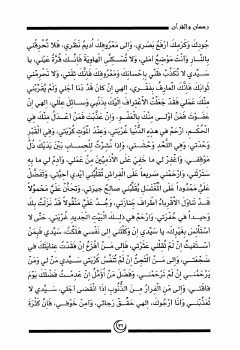 رمضان والقرآن
جودك وكرمك ارفع بصري، والى معروفك اديم نظري، فلا تحرقني
بالنار وانت موضع املي، ولا تسكني الهاوية فانك قرة عيني، يا
سيدي لا تكذب ظني باحسانك ومعروفك فانك ثقتي، ولا تحرمني
ثوابك فانك العارف بفقري، الهي ان كان قد دنا اجلي ولم يقربني
منك عملي فقد جعلت الاعتراف اليك بذنبي وسائل عللي، الهي ان
عفوت فمن اولى منك بالعفو، وان عذبت فمن اعدل منك في
الحكم، ارحم في هذه الدنيا غربتي، وعند الموت كربتي، وفي القبر
وحدتي، وفي اللحد وحشتي، واذا نشرت للحساب بين يديك ذل
موقفي، واغفر لي ما خفي على الآدميين من عملي، وادم لي ما به
سترتني، وارحمني صريعا على الفراش تقلبني ايدي احبتي، وتفضل
علي ممدودا على المغتسل يقلبني صالح جيرتي، وتحنن علي محمولا
قد تناول الأقرباء اطراف جنازتي، وجد علي منقولا قد نزلت بك
وحيدا في حفرتي، وارحم في ذلك البيت الجديد غربتي، حتى لا
استأنس بغيرك، يا سيدي ان وكلتني الى نفسي هلكت، سيدي فبمن
استغيث ان لم تقلني عثرتي، فالى من افزع ان فقدت عنايتك في
ضجعتي، والى من التجئ ان لم تنفس كربتي سيدي من لي ومن
يرحمني ان لم ترحمني، وفضل من اؤمل ان عدمت فضلك يوم
فاقتي، والى من الفرار من الذنوب اذا انقضى اجلي، سيدي لا
تعذبني وانا ارجوك، الهي حقق رجائي، وآمن خوفي، فان كثرة